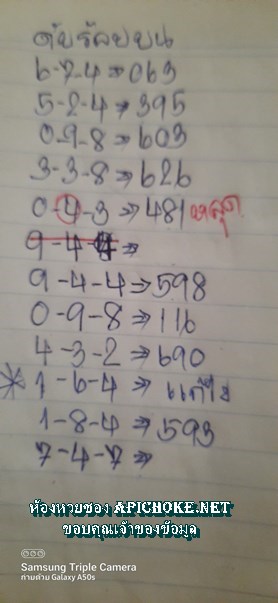 ดับร้อยบน
6-7-4⇒063
5-2-4⇒395
0-9-8⇒603
3-3-8⇒626
0-4-3⇒481 หลุด
9-4-4⇒
9-4-4⇒598
0-9-8⇒116
4-3-2⇒690
* 1-6-4⇒ แก้ไข
1-8-4⇒593
7-4-7⇒
ห้องหวยซอง APICHOKE.NET
ขอบคุณเจ้าของข้อมูล
Samsung Triple Camera
ถ่ายด้วย Galaxy A50s